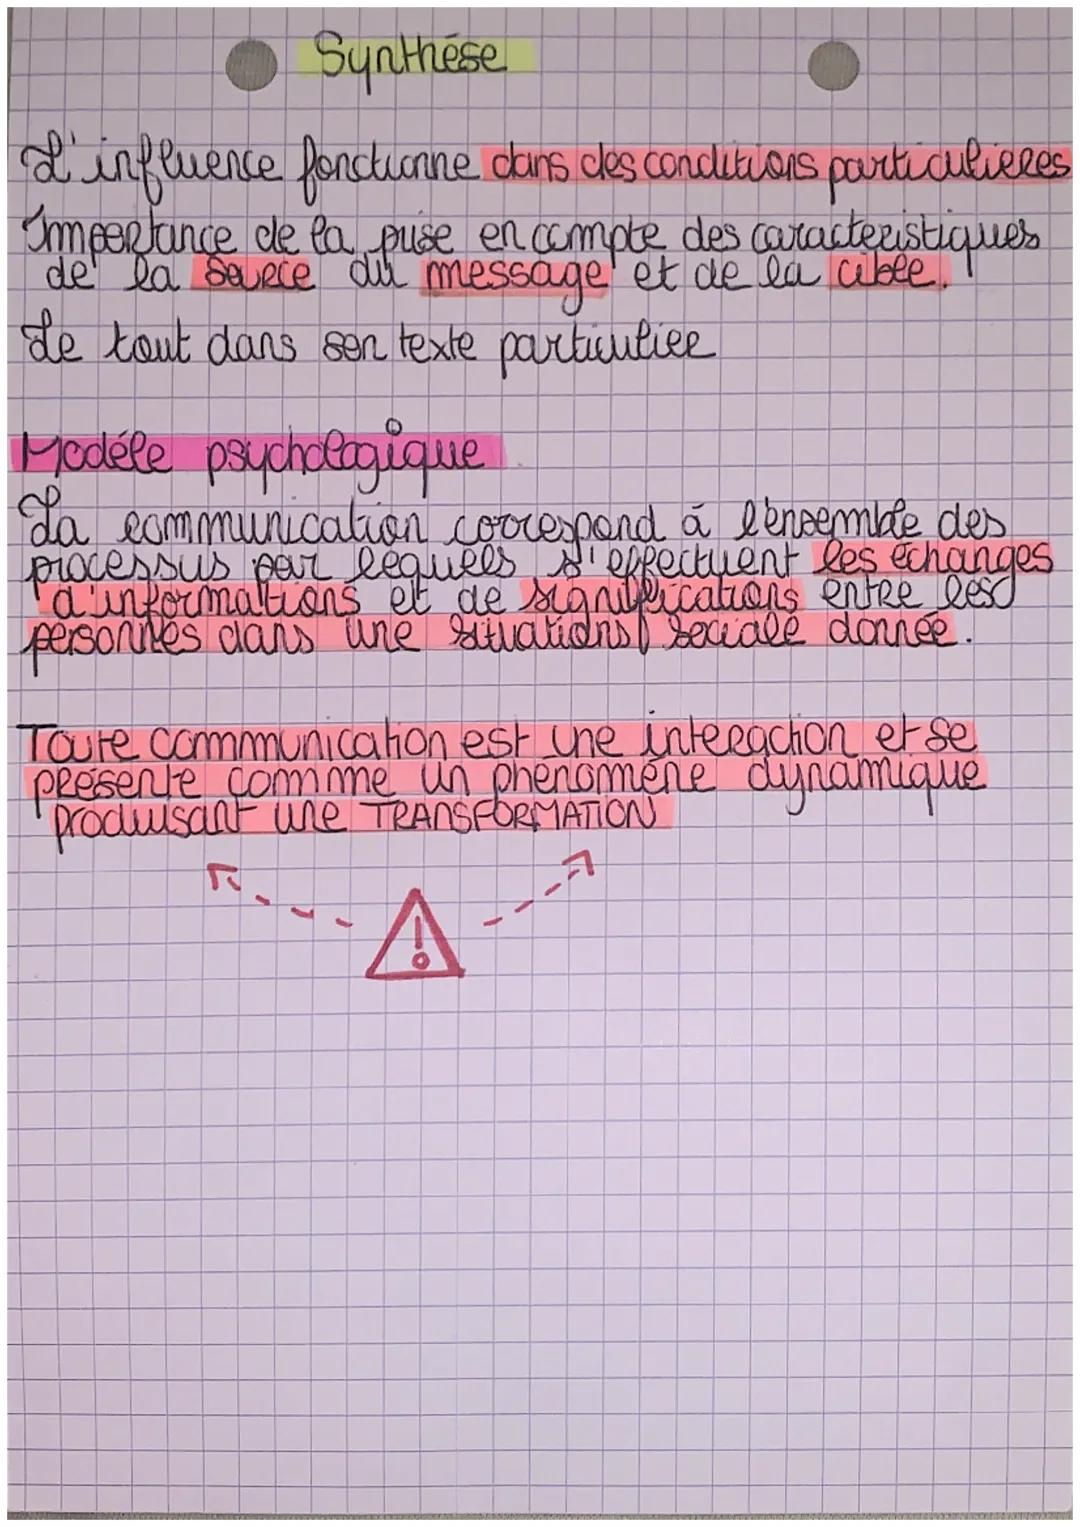 Synthése
L'influence fonctionne dans des conditions particulieres
Importance de la prise en compte des caracteristiques
de la source du message et de la cible.
Le tout dans son texte particulier
Modéle psychologique
La communication correspond à l'ensemble des
processus par lequels s'effectuent les échanges
d'informations et de significations entre les
personnes dans une situations sociale donnée.
Toute communication est une interaction et se
présente comme un phénoméne dynamique
produisant une TRANSFORMATION
!